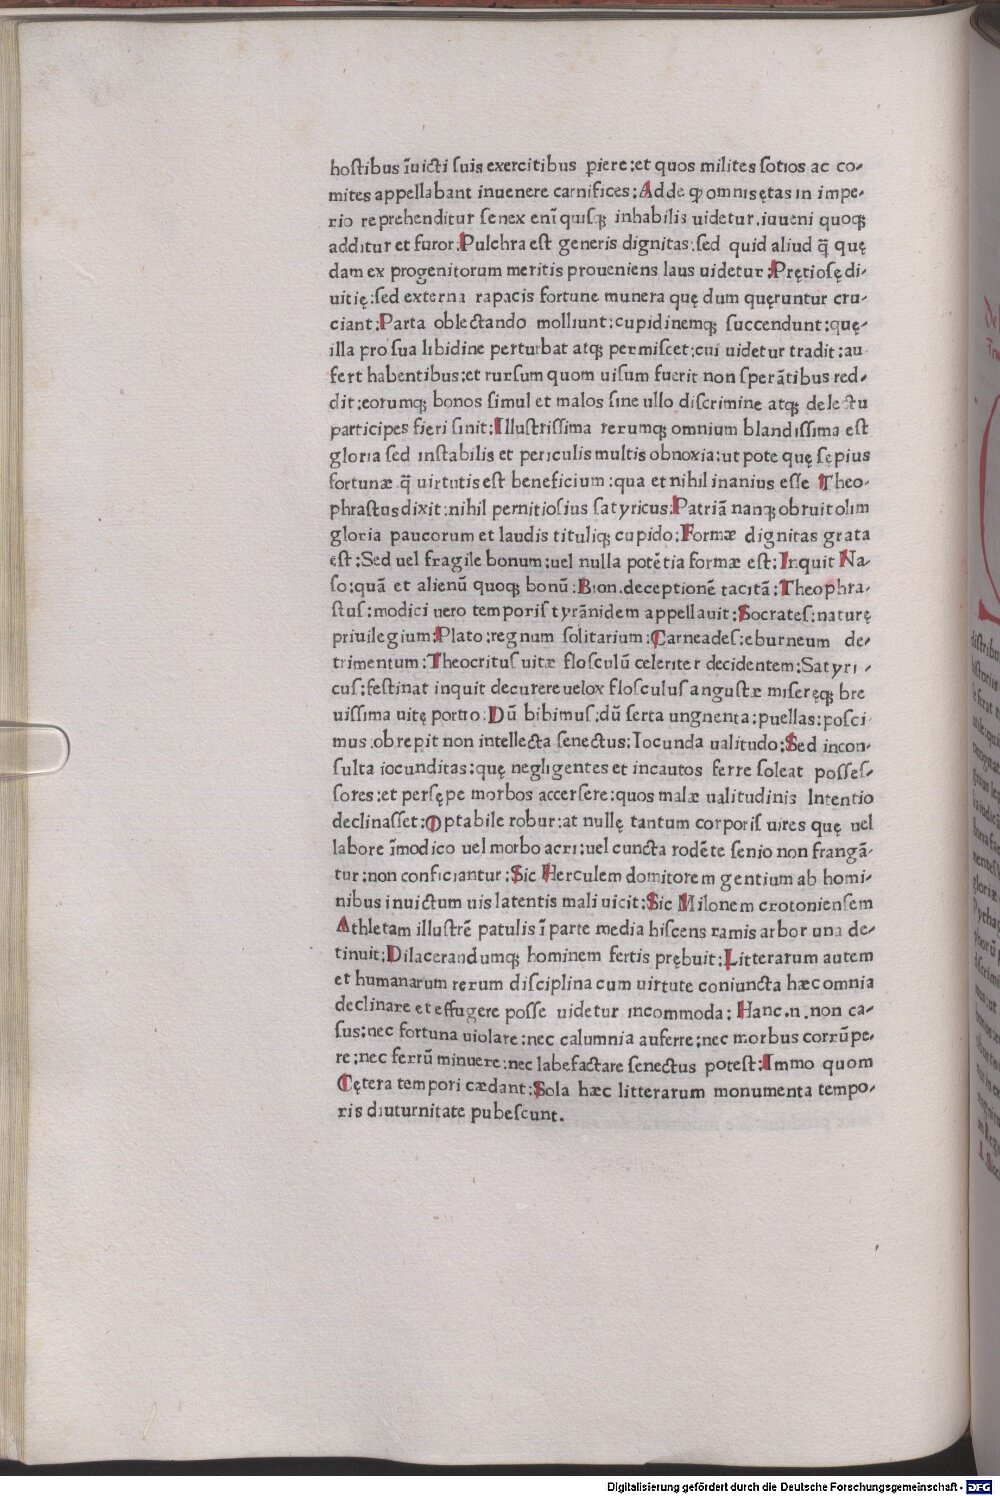 hoſtibus īuicti ſuis exercitibus piere:et quos milites ſotios ac co-
mites appellabant inuenere carnifices:Adde ꝙ omnis ętas in impe-
rio reprehenditur ſenex enī quiſqꝫ inhabilis uidetur.iuueni quoqꝫ
additur et furor:Pulchra eſt generis dignitas:ſed quid aliud q̄ quę
dam ex progenitorum meritis proueniens laus uidetur:Prętioſę di-
uitię:ſed externa rapacis fortune munera quę dum quęruntur cru-
ciant:Parta oblectando molliunt:cupidinemqꝫ ſuccendunt:quę-
illa pro ſua libidine perturbat atqꝫ permiſcet:cui uidetur tradit:au
fert habentibus:et rurſum quom uiſum fuerit non ſperātibus red-
dit:eorumqꝫ bonos ſimul et malos ſine ullo diſcrimine atqꝫ delectu
participes fieri ſinit:Illuſtriſſima rerumqꝫ omnium blandiſſima eſt
gloria ſed inſtabilis et periculis multis obnoxia:ut pote quę ſępius
fortunæ q̄ uirtutis eſt beneficium:qua et nihil inanius eſſe Theo-
phraſtus dixit:nihil pernitioſius ſatyricus:Patriā nanqꝫ obruit olim
gloria paucorum et laudis tituliqꝫ cupido:Formæ dignitas grata
eſt:Sed uel fragile bonum:uel nulla potētia formæ eſt:Inquit Na-
ſo:quā et alienū quoqꝫ bonū:Bion.deceptionē tacitā:Theophra-
ſtuſ:modici uero temporiſ tyrānidem appellauit:Socrateſ:naturę
priuilegium:Plato:regnum ſolitarium:Carneadeſ:eburneum de-
trimentum:Theocrituſ uitæ floſculū celeriter decidentem:Satyri-
cuſ:feſtinat inquit decurere uelox floſculuſ anguſtæ miſeręqꝫ bre
uiſſima uitę portio:Dū bibimuſ:dū ſerta ungnenta:puellas:poſci
mus:obrepit non intellecta ſenectus:Iocunda ualitudo:Sed incon-
ſulta iocunditas:quę negligentes et incautos ferre ſoleat poſſeſ-
ſores:et perſępe morbos accerſere:quos malæ ualitudinis Intentio
declinaſſet:Optabile robur:at nullę tantum corporiſ uires quę uel
labore īmodico uel morbo acri:uel cuncta rodēte ſenio non frangā-
tur:non conficiantur:Sic Herculem domitorem gentium ab homi-
nibus inuictum uis latentis mali uicit:Sic Milonem crotonienſem
Athletam illuſtrē patulis ī parte media hiſcens ramis arbor una de-
tinuit:Dilacerandumqꝫ hominem fertis prębuit:Litterarum autem
et humanarum rerum diſciplina cum uirtute coniuncta hæc omnia
declinare et effugere poſſe uidetur incommoda:Hanc.n.non ca-
ſus:nec fortuna uiolare:nec calumnia auferre:nec morbus corrūpe-
re:nec ferrū minuere:nec labefactare ſenectus poteſt:Immo quom
Cętera tempori cædant:Sola hæc litterarum monumenta tempo-
ris diuturnitate pubeſcunt.
Digitalisierung gefördert durch die Deutsche Forschungsgemeinschaft - DFG